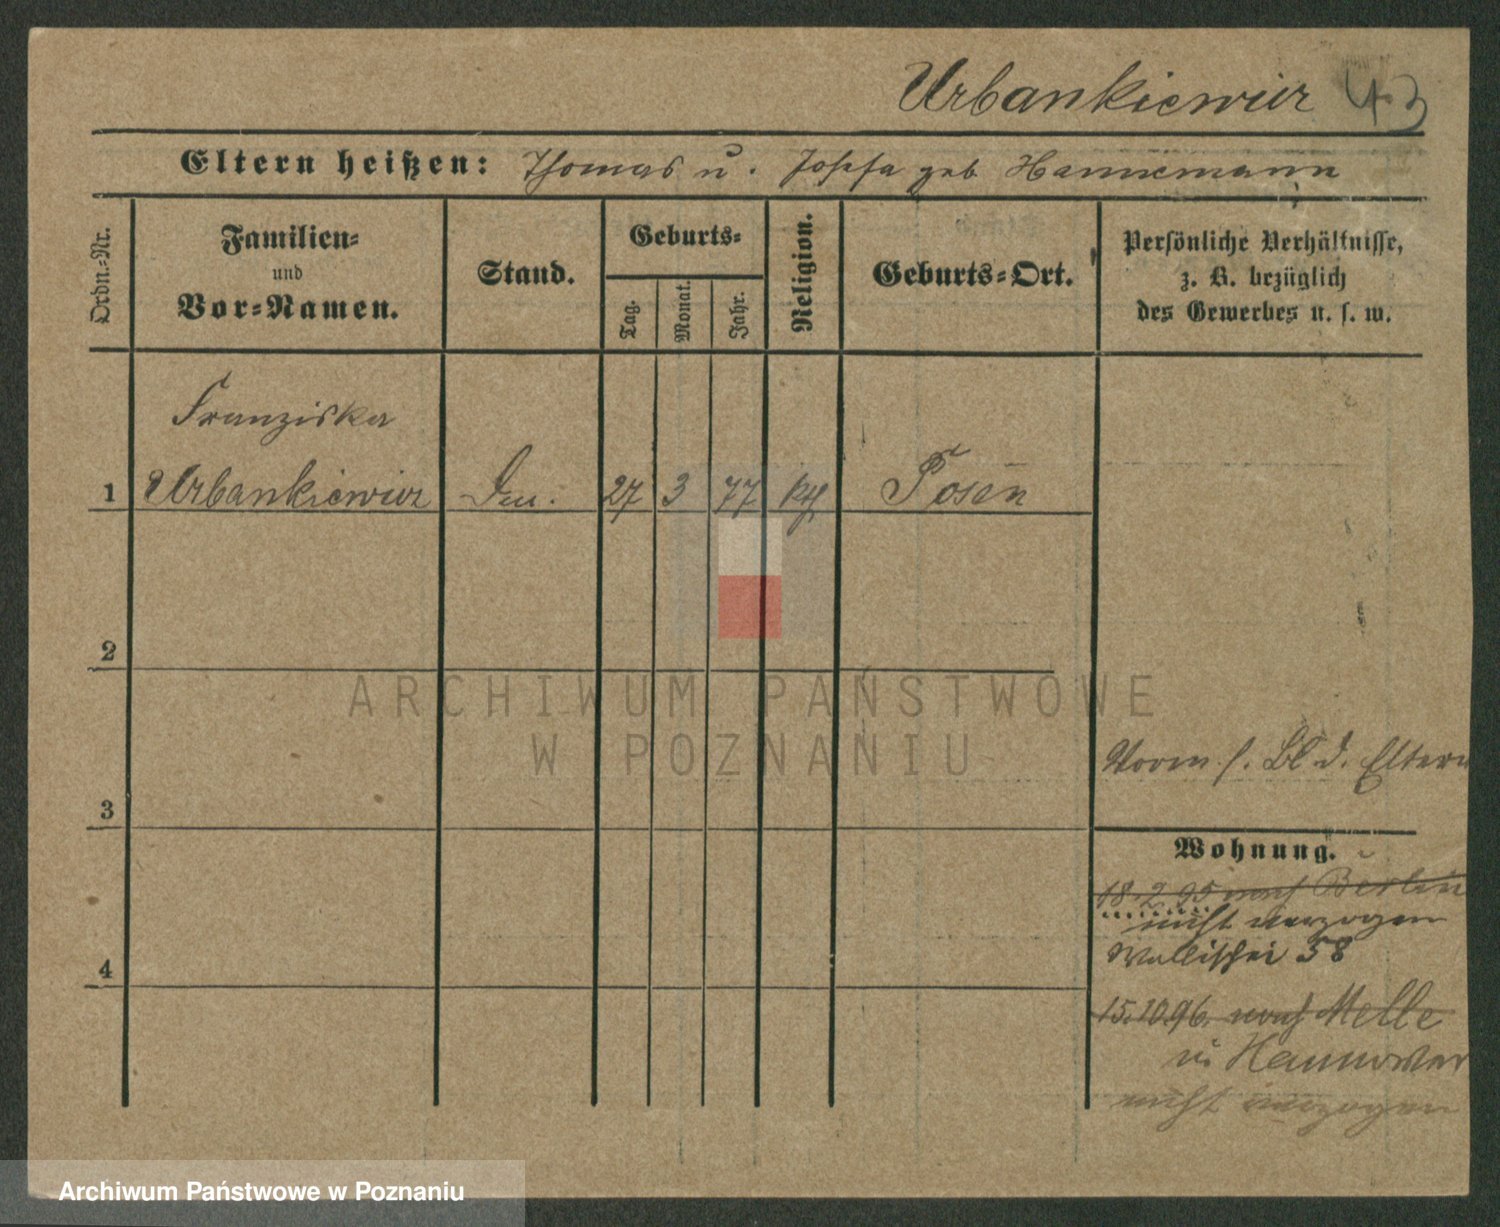 Urbankiewicz 43
Eltern heißen: Thomas u. Josefa geb Hannemann
Ordn.-Nr.
Familien-
und
Vor-Namen.
Stand.
Geburts-
Tag.
Monat.
Jahr.
Religion.
Geburts-Ort.
Persönliche Verhältnisse,
z. B. bezüglich
des Gewerbes u. s. w.
Franziska
1 Urbankiewicz 27 3 77 kth Posen
2
ARCHIWUM PAŃSTWOWE
W POZNANIU
Vorm s. Bl d. Eltern
3
Wohnung.
18.2.95 nach Berlin
nicht verzogen
Wallischei 58
4
15.10.96. nach Melle
in Hannover
nicht verzogen
Archiwum Państwowe w Poznaniu